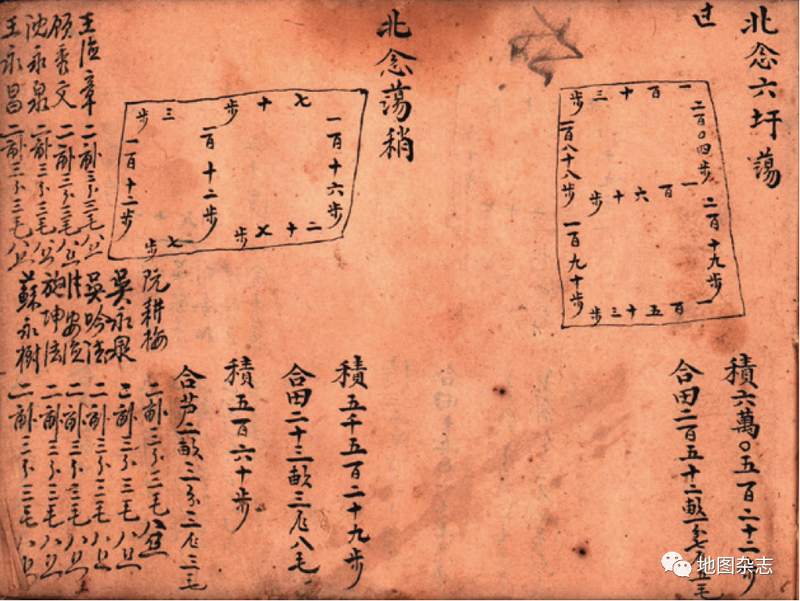 北念六圩蕩
过
一百十三步
二百〇四步
一百八十八步
一百六十步
二百十九步
一百九十步
一百五十三步
積六萬〇五百二十二步
合田二百五十二畝一分七厘五毛
北念蕩稍
七十步
三步
一百十六步
一百十二步
一百十二步
二十七步
七步
積五千五百二十九步
合田二十三畝三厘八毛
積五百六十步
合芦二畝三分三厘三毛
阮耕梅 二畝三分三毛八丝
吳永泉 二畝三分三毛八丝
吳吟法 二畝三分三毛八丝
二畝三分三毛八丝
施坤法 二畝三分三毛八丝
蘇永樹 二畝三分三毛八丝
王 章 二畝三分三毛八丝
顾秀文 二畝三分三毛八丝
沈永泉 二畝三分三毛八丝
王永昌 二畝三分三毛八丝
地图杂志